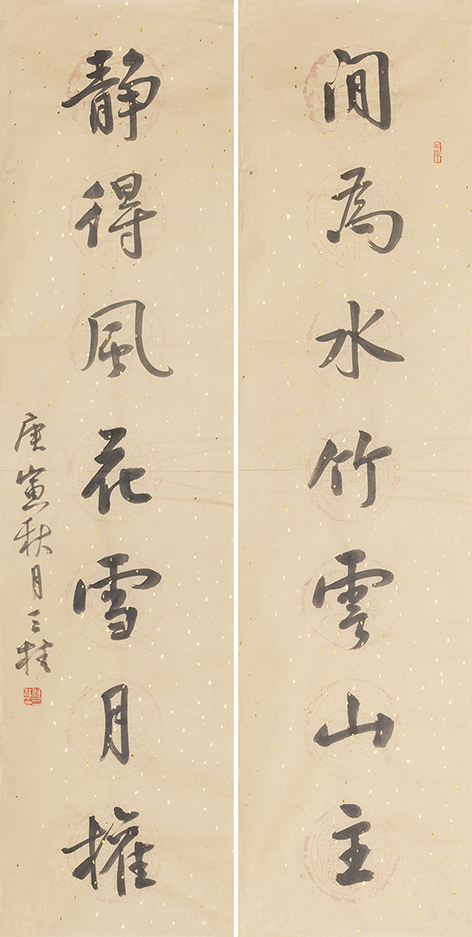 閒為水竹雲山主
靜得風花雪月權
庚寅秋月三桂